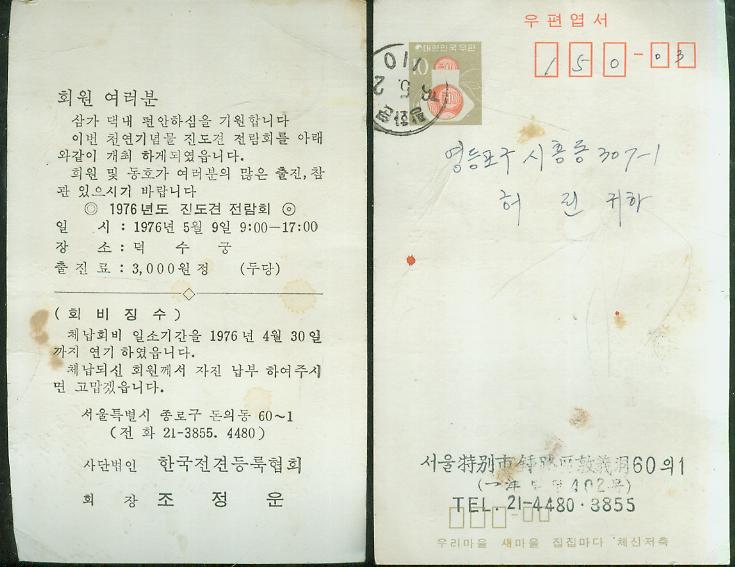 회원 여러분
삼가 댁내 편안하심을 기원합니다
이번 천연기념물 진도견 전람회를 아래
와같이 개최 하게되였읍니다.
회원 및 동호가 여러분의 많은 출진,참
관 있으시기 바랍니다
◎ 1976년도 진도견 전람회 ◎
일 시 : 1976년 5월 9일 9:00—17:00
장 소 : 덕 수 궁
출진료 : 3,000원정 (두당)
(회비징수)
체납회비 일소기간을 1976년 4월 30일
까지 연기 하였읍니다.
체납되신 회원께서 자진 납부 하여주시
면 고맙겠읍니다.
서울특별시 종로구 돈의동 60~1
(전화 21-3855. 4480)
사단법인 한국전견등록협회
회 장 조 정 운
우편엽서
150-03
대한민국우편
10
영등포구 시흥동 307-1
허 린 귀하
서울特別市 鍾路區 敦義洞 60의1
402号)
TEL. 21-4480·3855
우리마을 새마을 집집마다 체신저축